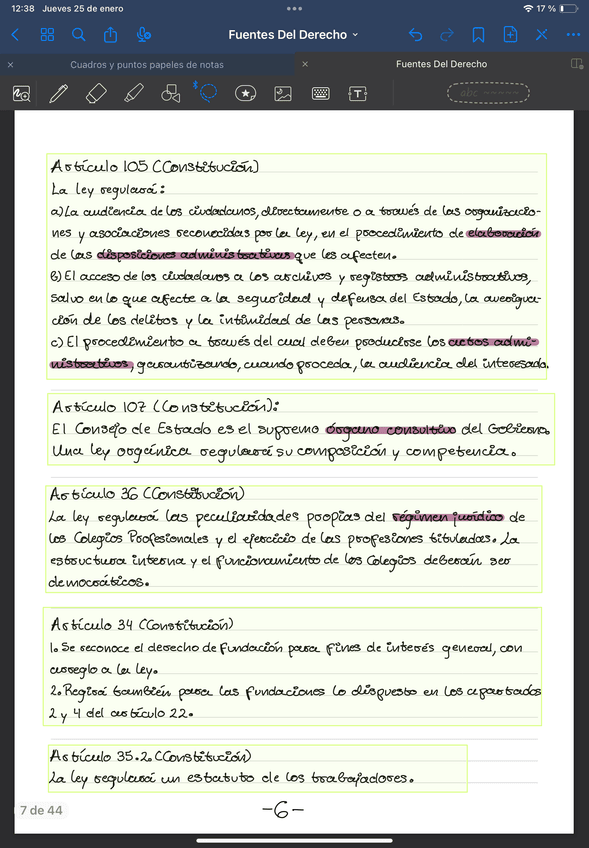 12:38 Jueves 25 de enero
17 %
Fuentes Del Derecho
Cuadros y puntos papeles de notas
Fuentes Del Derecho
abc
Artículo 105 (Constitución)
La ley regulará:
a) La audiencia de los ciudadanos, directamente o a través de las organizacio-
nes y asociaciones reconocidas por la ley, en el procedimiento de elaboración
de las disposiciones administrativas que les afecten.
b) El acceso de los ciudadanos a los archivos y registros administrativos,
salvo en lo que afecte a la seguridad y defensa del Estado, la averigua-
ción de los delitos y la intimidad de las personas.
c) El procedimiento a través del cual deben producirse los actos admi-
nistrativos, garantizando, cuando proceda, la audiencia del interesado.
Artículo 107 (Constitución):
El Consejo de Estado es el supremo órgano consultivo del Gobierno.
Una ley orgánica regulará su composición y competencia.
Artículo 36 (Constitución)
La ley regulará las peculiaridades propias del régimen jurídico de
los Colegios Profesionales y el ejercicio de las profesiones tituladas. La
estructura interna y el funcionamiento de los Colegios deberán ser
democráticos.
Artículo 34 (Constitución)
1. Se reconoce el derecho de fundación para fines de interés general, con
arreglo a la ley.
2. Regirá también para las fundaciones lo dispuesto en los apartados
2 y 4 del artículo 22.
Artículo 35.2. (Constitución)
La ley regulará un estatuto de los trabajadores.
7 de 44
-6-